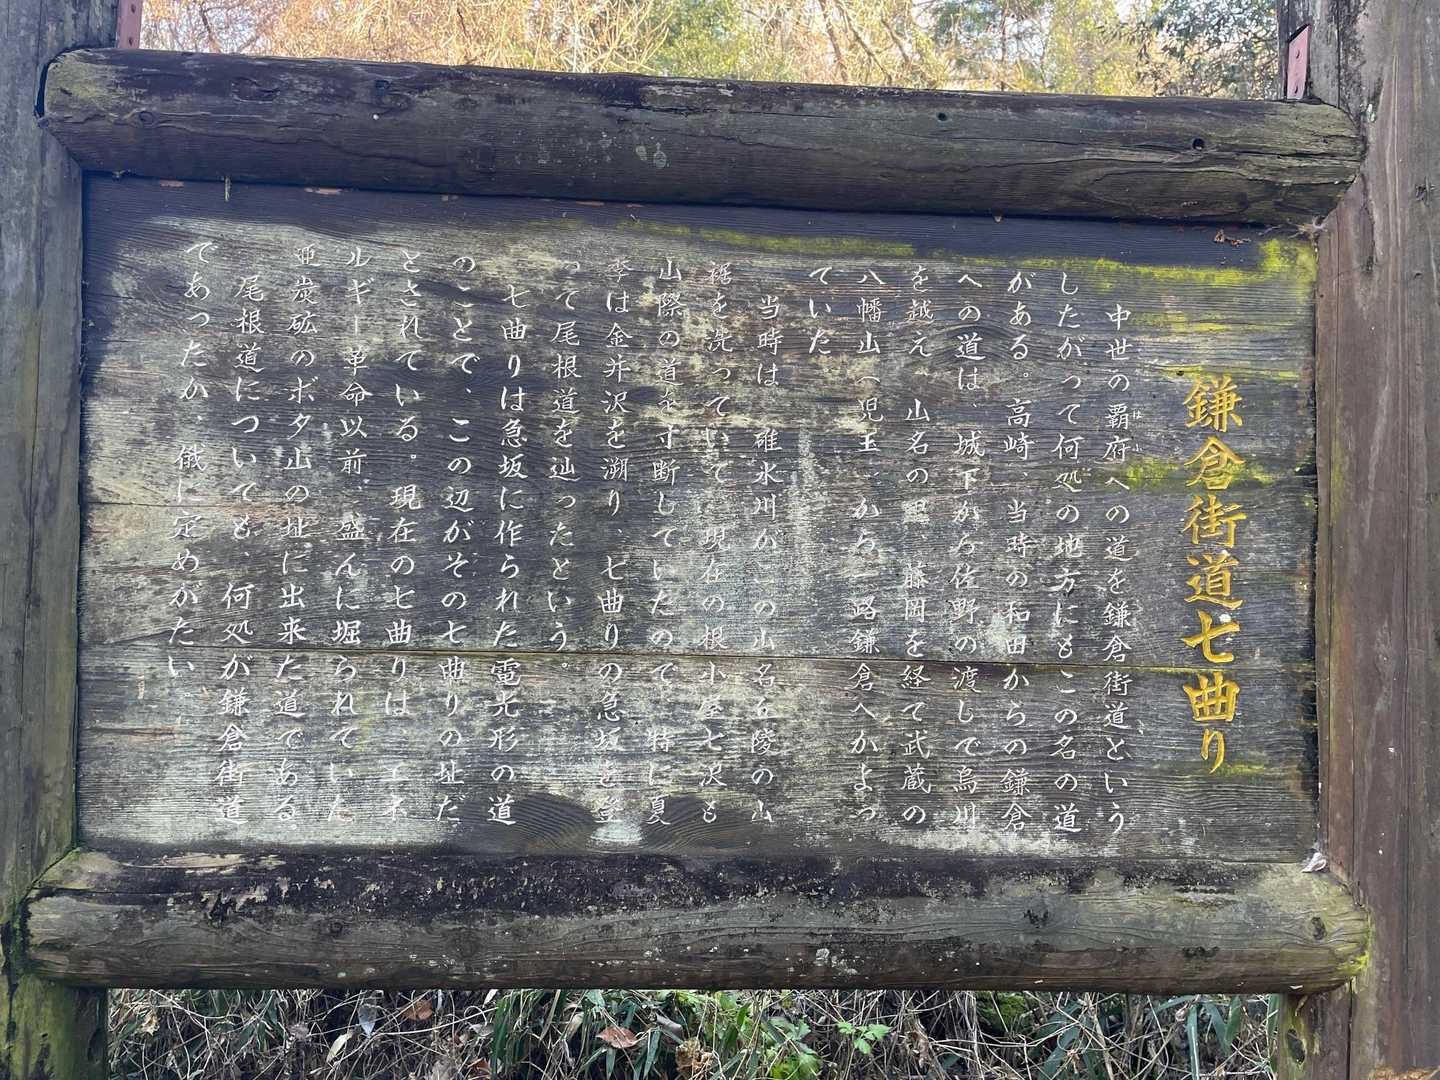 鎌倉街道七曲り
中世の覇府への道を鎌倉街道という
はふ
したがって何処の地方にもこの名の道
がある。高崎、当時の和田からの鎌倉
への道は、城下から佐野の渡しで烏川
を越え、山名の里、藤岡を経て武蔵の
八幡山（児玉）から一路鎌倉へかよっ
ていた
当時は、碓氷川がこの山名丘陵の山
裾を洗っていて、現在の根小屋七沢も
山際の道を寸断していたので、特に夏
季は金井沢を溯り、七曲りの急坂を登
って尾根道を辿ったという。
七曲りは急坂に作られた電光形の道
のことで、この辺がその七曲りの址だ
とされている。現在の七曲りは、エネ
ルギー革命以前、盛んに堀られていた
亜炭砿のボタ山の址に出来た道である。
尾根道についても、何処が鎌倉街道
であったか、俄に定めがたい。